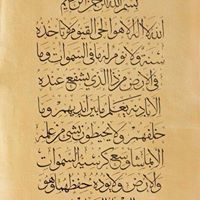 بسم الله الرحمن الرحيم
الله لا إله إلا هو الحي القيوم لا تأخذه
سنة ولا نوم له ما في السموات وما
في الأرض من ذا الذي يشفع عنده
إلا بإذنه يعلم ما بين أيديهم وما
خلفهم ولا يحيطون بشيء من علمه
إلا بما شاء وسع كرسيه السموات
والأرض ولا يؤده حفظهما وهو